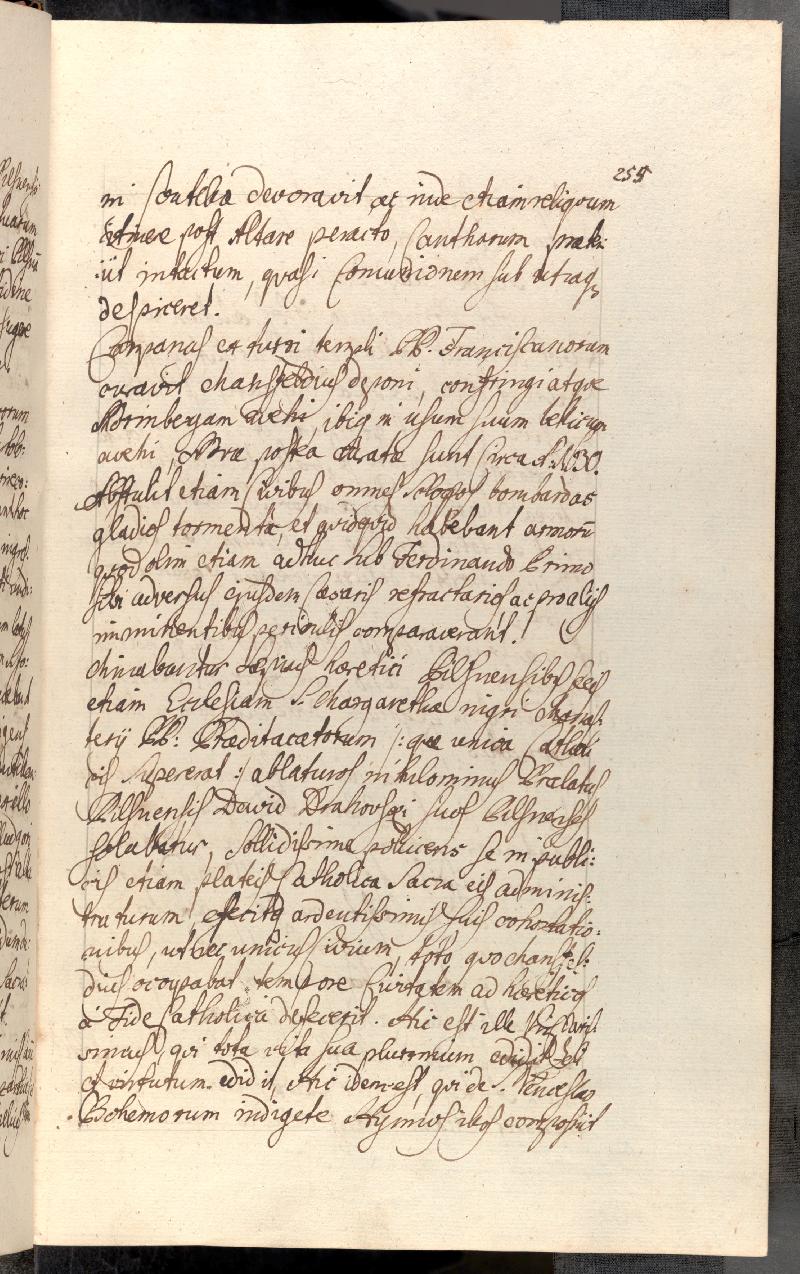 255
ni Scutella devoravit ac inde etiam reliquum
post Altare peracto, Cantharum præte:
:iit intactum, quasi Comunionem sub utraq3
despiceret.
Campanas ex turri templi PP. Franciscanorum
curavit Mansfeldius deponi, confringi atque
Norimbergam avehi, ibiq in usum suum bellicum
avehi, postea sunt Circa A. 1630.
Abstulit etiam Civibus omnes sclopos bombardas
gladios tormenta, et quidquid habebant armorũ
quod olim etiam adhuc sub Ferdinando Primo
sibi adversus ejusdem Cæsaris refractarios ac pro alijs
imminentibus periculis comparaverant.
Minabantur sæpius hæretici Pilsnensibus sese
etiam Ecclesiam S. Margarethæ nigri Monas:
terij PP: Prædicatorum /: quæ unica Catholi
cis supererat :/ ablaturos nihilominus Prælatus
Pilsnensis David Drahovski suos Pilsnenses
solabatur, sollidissime pollicens se in publi:
cis etiam plateis Catholica Sacra eis adminis:
traturum effecitq ardentissimis suis cohortatio:
nibus, ut nec unicus Civium, toto quo Mansfel:
dius occupabat tempore Civitatem ad hæreticos
à Fide Catholica defecerit. Hic est ille
simus, qui tota vita sua plurimum
et virtutum edidit, Hic idem est, qui de S. Venceslao
Bohemorum indigete Hymnos illos composuit